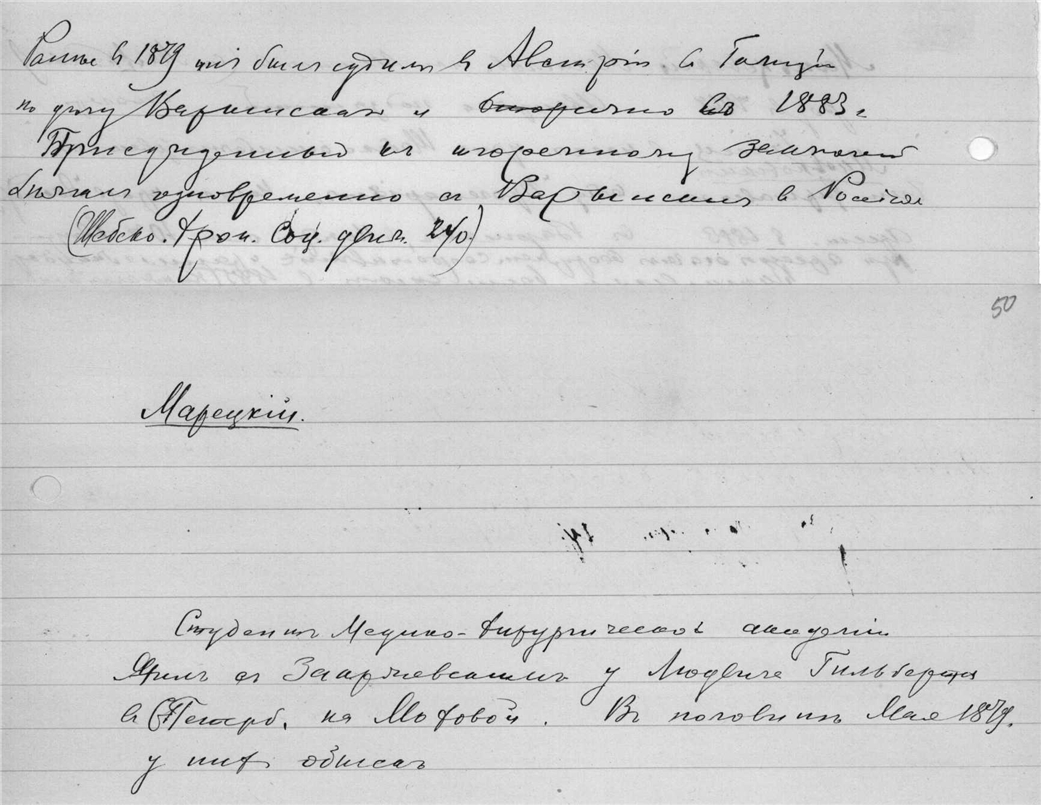 Раньше в 1879 онъ былъ судимъ въ Австріи въ Галиціи
по делу Варынскаго и вторично въ 1883 г
Присужденный къ тюремному
одновременно съ Варынскимъ въ Россіи
(Шебеко. Хрон. Соц. движ. 240.)
50
Марецкій.
Студентъ Медико-Хирургической академіи
Жилъ съ у Людвига Гильберта
въ Петерб. на Моховой. Въ половинѣ Мая 1879.
у нихъ обыскъ